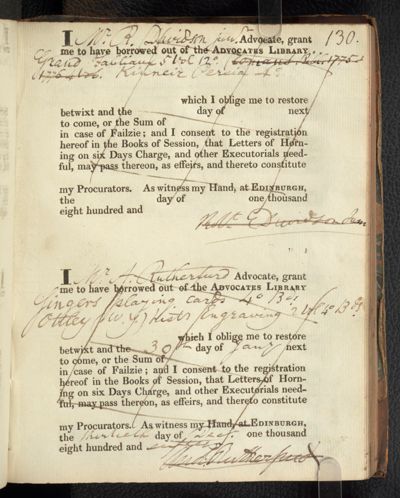 I Mr R. Davidson junr Advocate, grant 130.
me to have borrowed out of the ADVOCATES LIBRARY
Grand 5 vol 12o
Kinneir Persia 4o
which I oblige me to restore
betwixt and the day of next
to come, or the Sum of
in case of Failzie; and I consent to the registration
hereof in the Books of Session, that Letters of Horn-
ing on six Days Charge, and other Executorials need-
ful, may pass thereon, as effeirs, and thereto constitute
my Procurators. As witness my Hand, at EDINBURGH,
the day of one thousand
eight hundred and
Robt Davidson Jun
I Mr A. Rutherfurd Advocate, grant
me to have borrowed out of the ADVOCATES LIBRARY
Singers playing cards 4o Bds
Ottley (W. Y.) Hist. Engraving 2 vol 4o Bds
which I oblige me to restore
betwixt and the 30th day of Jany next
to come, or the Sum of
in case of Failzie; and I consent to the registration
hereof in the Books of Session, that Letters of Horn-
ing on six Days Charge, and other Executorials need-
ful, may pass thereon, as effeirs, and thereto constitute
my Procurators. As witness my Hand, at EDINBURGH,
the thirtieth day of Dec. one thousand
eight hundred and
Rutherfurd